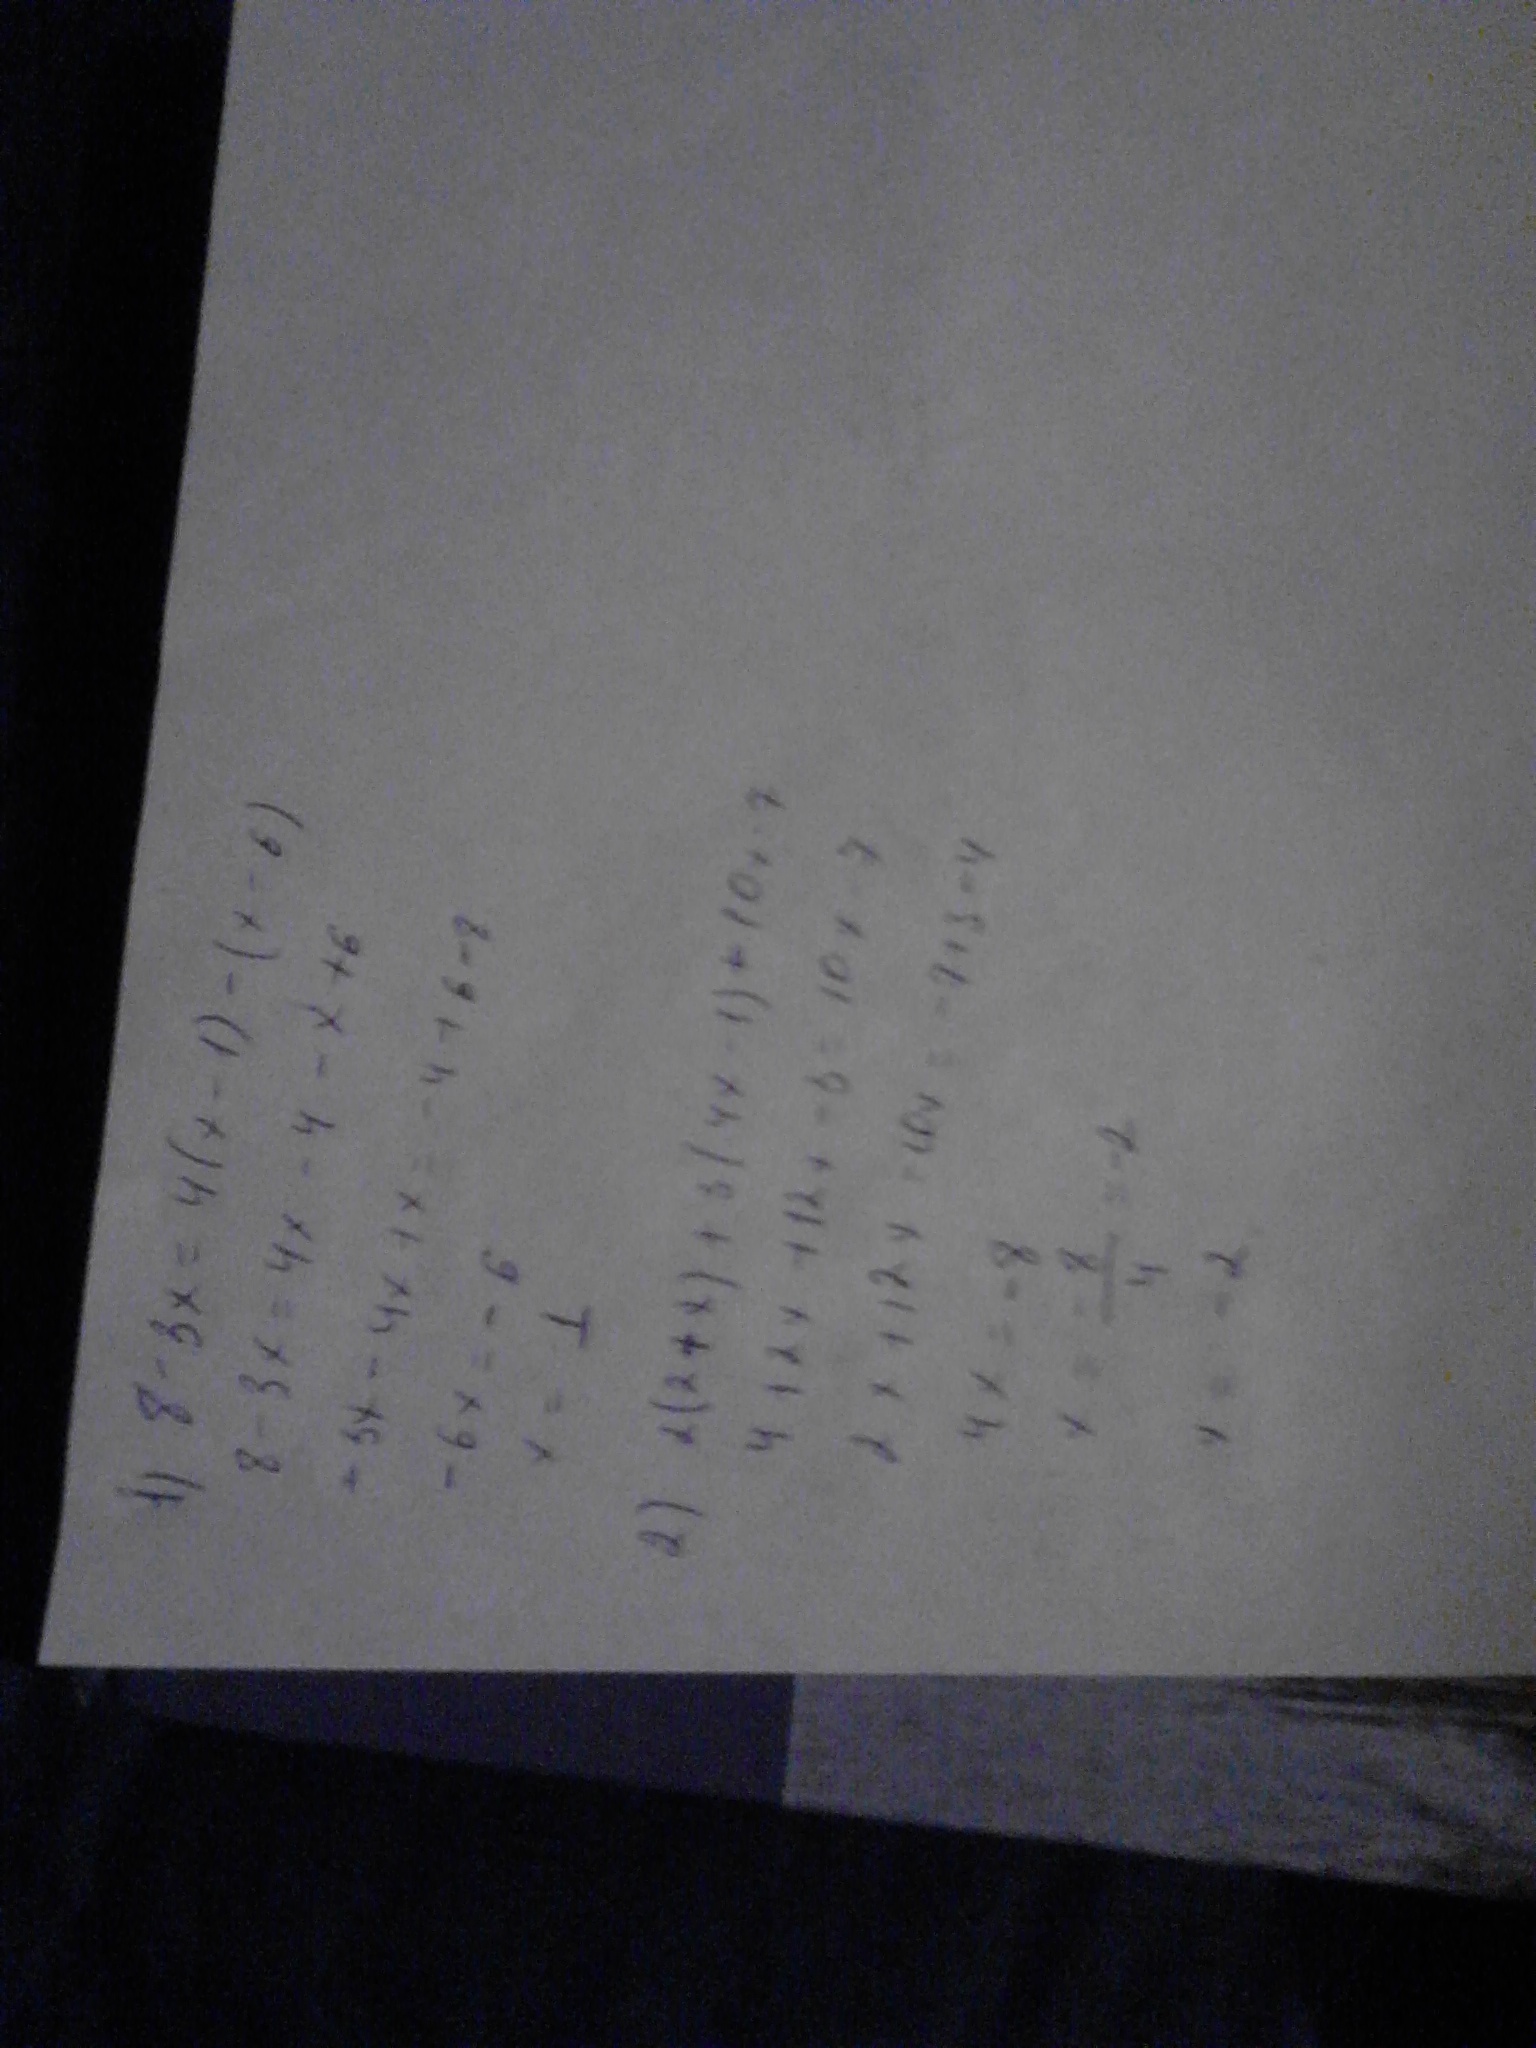 1) 8-3x=4(x-1)-(x-6)
8-3x=4x-4-x+6
-3x-4x+x=-4+6-8
-6x=-6
x=1
2) 2(2+x)+3(4x-1)=10x-7
4+2x+12x-3=10x-7
2x+12x-10x=-7+3-4
4x=-8
x=-8/4=-2
x=-2